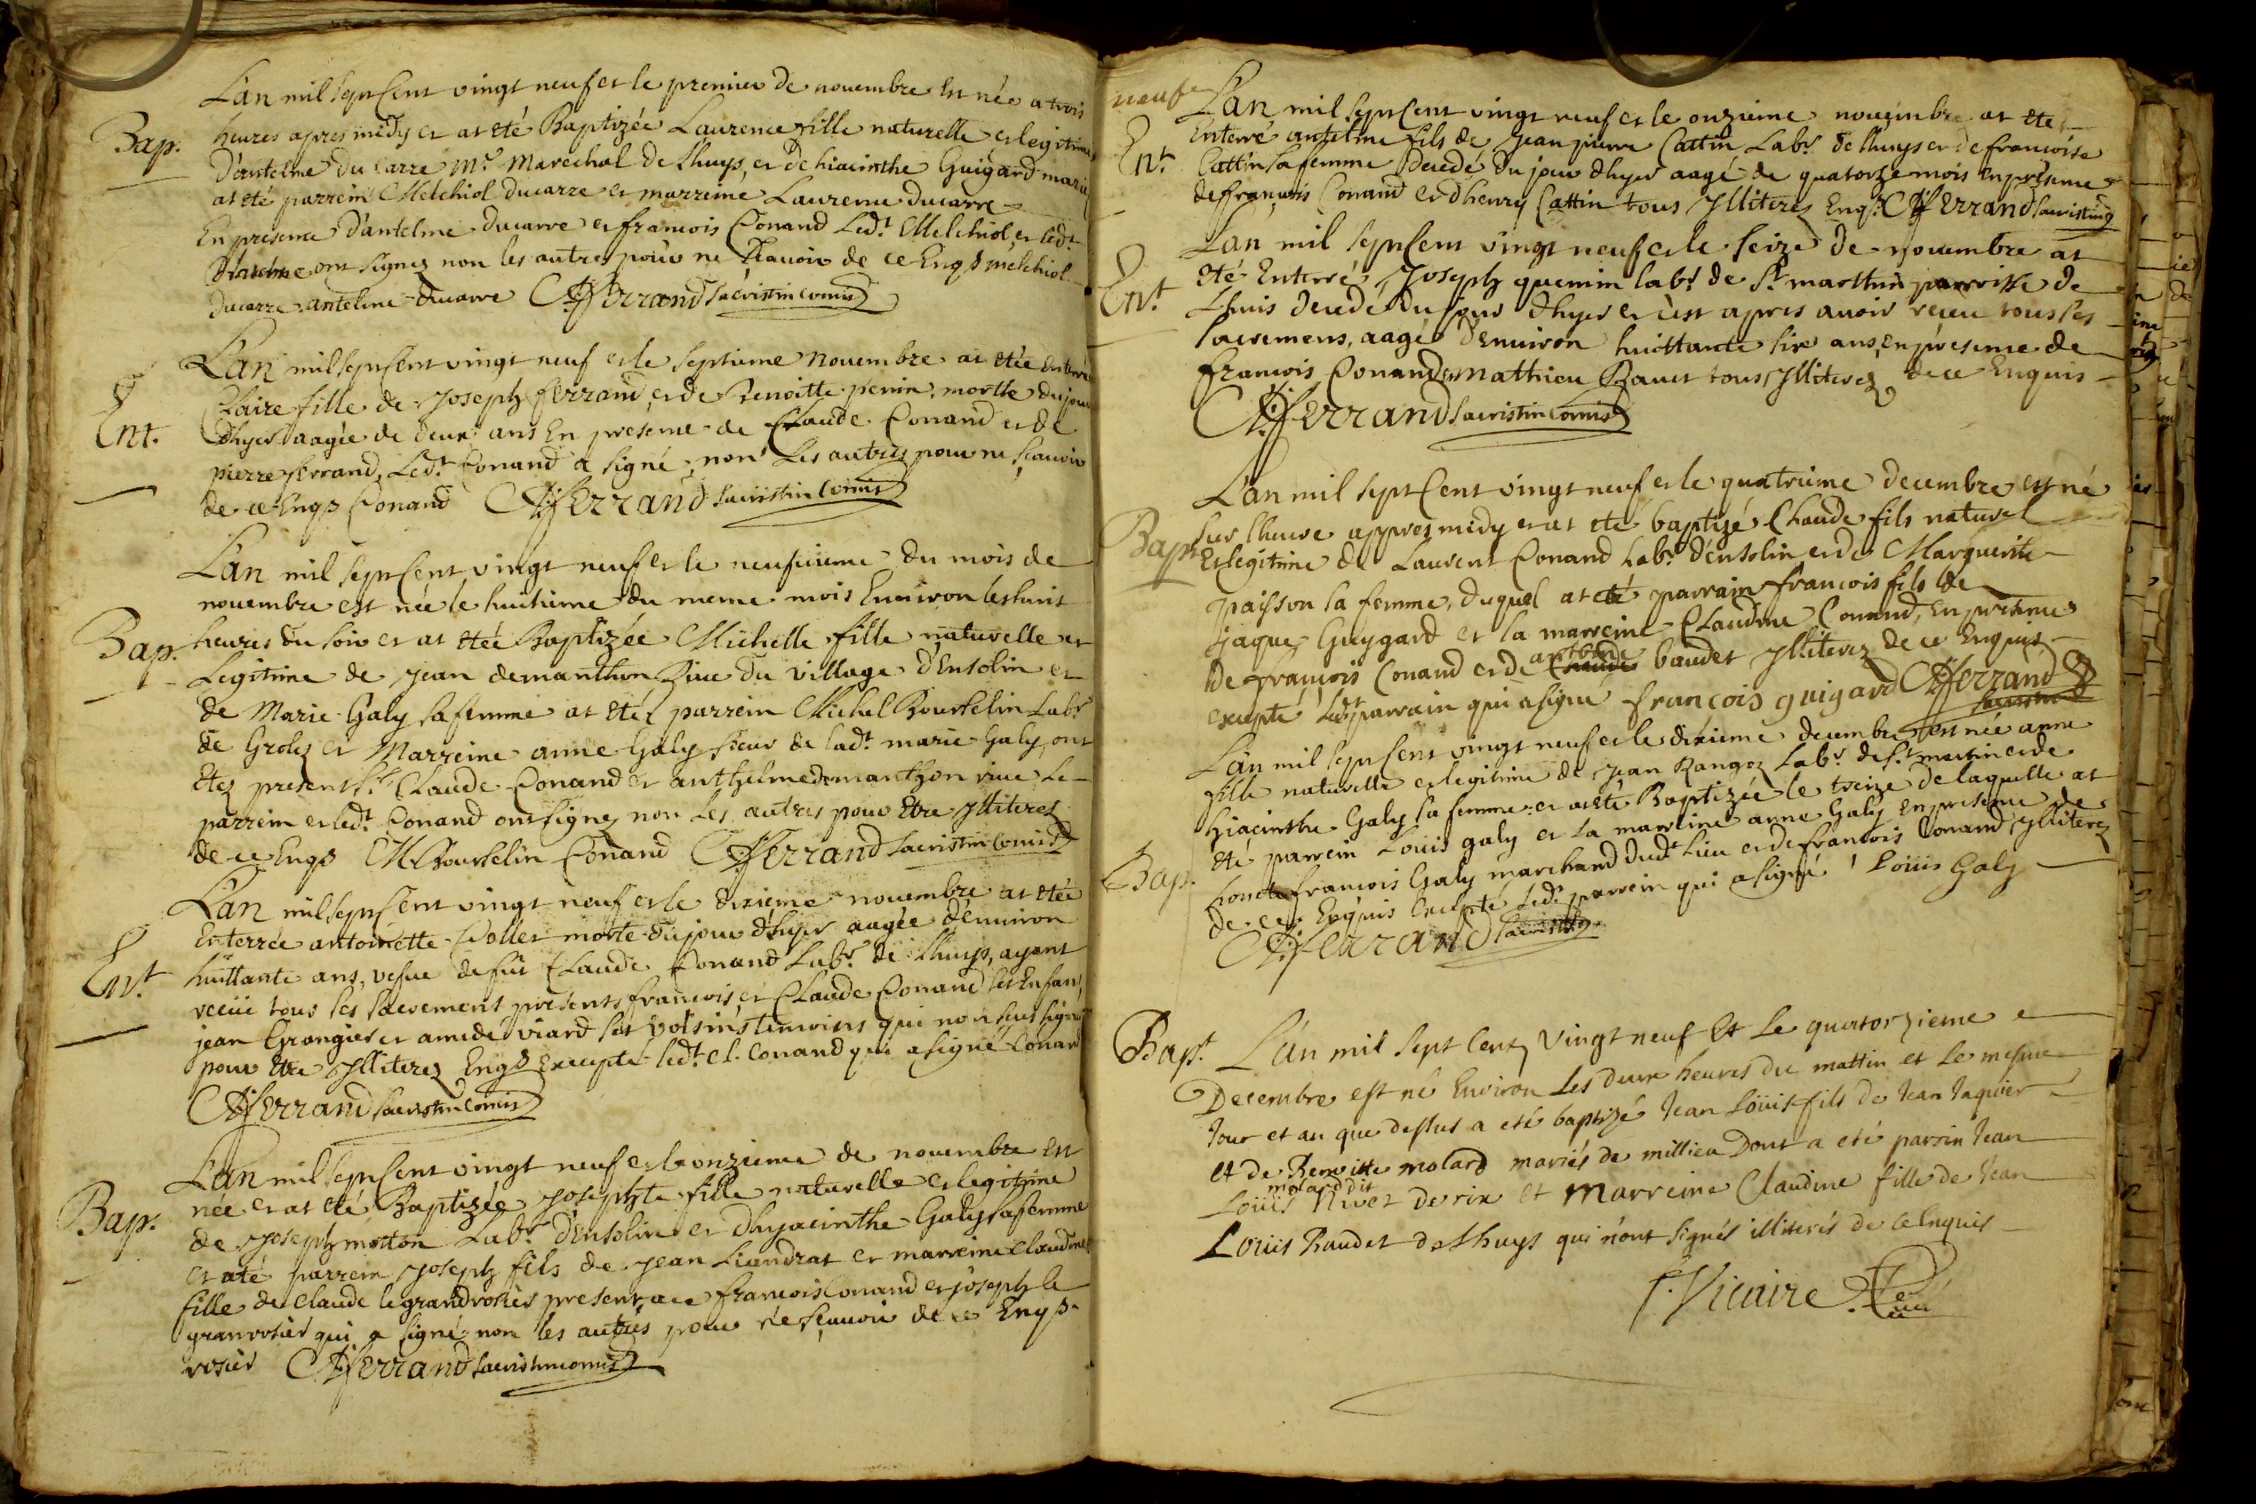 L'an mil sept cent vingt neuf et le premier de novembre est née a trois
Bap. heures apres midy et at eté Baptizée Laurence fille naturelle et legitime
D'antelme du carre Mre Marechal de Lhuys, et de hiacinthe Guigard mariés
at eté parrein Melchiol ducarre et marreine Laurence ducarre
En presence D'antelme ducarre et francois Conand Ledt Melchiol et ledt
antelme ont signez non les autres pour ne scavoir de ce Enqs melchiol
ducarre antelme ducarre Ferrand sacristin comis
L'an mil sept cent vingt neuf et le septieme novembre at etée enterrée
Claire fille de Joseph ferrand et de Benoitte perin, morte du jour
Ent. dhyer aagée de deux ans En presence de Claude Conand et de
pierre ferrand, Ledt Conand a signé, non les autres pour ne scavoir
de ce Enqs Conand Ferrand sacristin comis
L'an mil sept cent vingt neuf et le neufvieme du mois de
novembre est née le huitieme du meme mois Environ les huit
Bap. heures du soir et at etée Baptizée Michelle fille naturelle et
Legitime de Jean demanthon Rive du village d'Ensolin et
de Marie Galy sa femme at eté parrein Michel Bourselin Labr
de Grolez et Marreine anne Galy sœur de ladt marie Galy, ont
etez presents Sr Claude Conand et anthelme demanthon rive Le
parrein et ledt Conand ont signez non Les autres pour etre Jlliterez
de ce Enqs M Bourselin Conand Ferrand sacristin comis
L'an mil sept cent vingt neuf et le dixieme novembre at etée
Enterrée antoinette Vollet morte du jour d'hyer aagée d'environ
Ent. huittante ans, vefue de fût Claude Conand Labr de Lhuys, ayant
receu tous ses sacrement presents francois et Claude Conand ses Enfans,
jean Grangier et amedé viard ses voisins temoins qui non sceus signer
pour etre Jlliterez Enqs Excepté ledt cl. conand qui a signé Conand
Ferrand sacristin comis
L'an mil sept cent vingt neuf et le onzieme de novembre est
née et at eté Baptizée Josephte fille naturelle et legitime
Bap. de Joseph motton Labr d'Ensolin et dhyacinthe Galy sa femme
et a eté parrein Joseph fils de Jean Liandrat et marreine claudine
fille de Claude le grand rosier present a ce francois Conand et joseph le
granrosier qui a signé non les autres pour ne scavoir de ce Enqs
rosier Ferrand sacristin comis
neuf
L'an mil sept cent vingt neuf et le onzieme novembre at eté
Enterré antelme fils de Jean pierre Cattin Labr de lhuys et de francoise
Ent. Cattin sa femme decedé du jour dhyer aagé de quatorze mois en presence
de francois Conand et dhenry Cattin tous Jlliterez Enqs Ferrand sacristin
L'an mil sept cent vingt neuf et le seize de novembre at
eté Enterré, Joseph quemin labr de St marttin parroisse de
Ent. Lhuis decedé du jour dhyer et c'est apres avoir receu tous ses
sacremens, aagé d'environ huittante six ans, en presence de
francois Conand et mathieu Bauet tous Jlliterez, de ce Enquis
Ferrand sacristin comis
L'an mil sept cent vingt neuf et le quatrieme decembre est né
sur lheure appres midy et at eté baptizé Claude fils naturel
Bap. Et legitime de Laurent Conand Labr d'ensolin et de Marguerite
paisson sa femme, duquel at eté parrain francois fils de
jaque Guygard et la marreine Claudine Conand, En presence
de francois Conand et de Claude antoine baudet Jlliterez de ce Enquis
excepté ledt parrain qui a signé françois guigard Ferrand sacristin
L'an mil sept cent vingt neuf et le dixieme decembre est née anne
fille naturelle et legitime de Jean Rangoz Labr de St martin et de
hiacinthe Galy sa femme et at eté Baptizée le treize de laquelle at
eté parrein Louis galy et la marreine anne Galy en presence de
Bap. honete francois Galy marchand dudt Lieu et de francois Conand Jlliterez
de ce Enquis excepté ledt parrein qui a signé Loüis Galy
Ferrand sacristin
Bapt. L'an mil sept Cent vingt neuf Et Le quatorzieme
Decembre est né Environ Les deux heures du mattin et Le mesme
Jour et an que dessus a eté baptizé Jean Loüis fils de Jean Jaquier
et de Benoitte molard mariés de millieu Dont a eté parrin Jean
Loüis molard dit Nivet de rix et Marreine Claudine fille de Jean
Loüis Baudet de Lhuys qui n'ont signés illiterés de ce Enquis
Vicaire